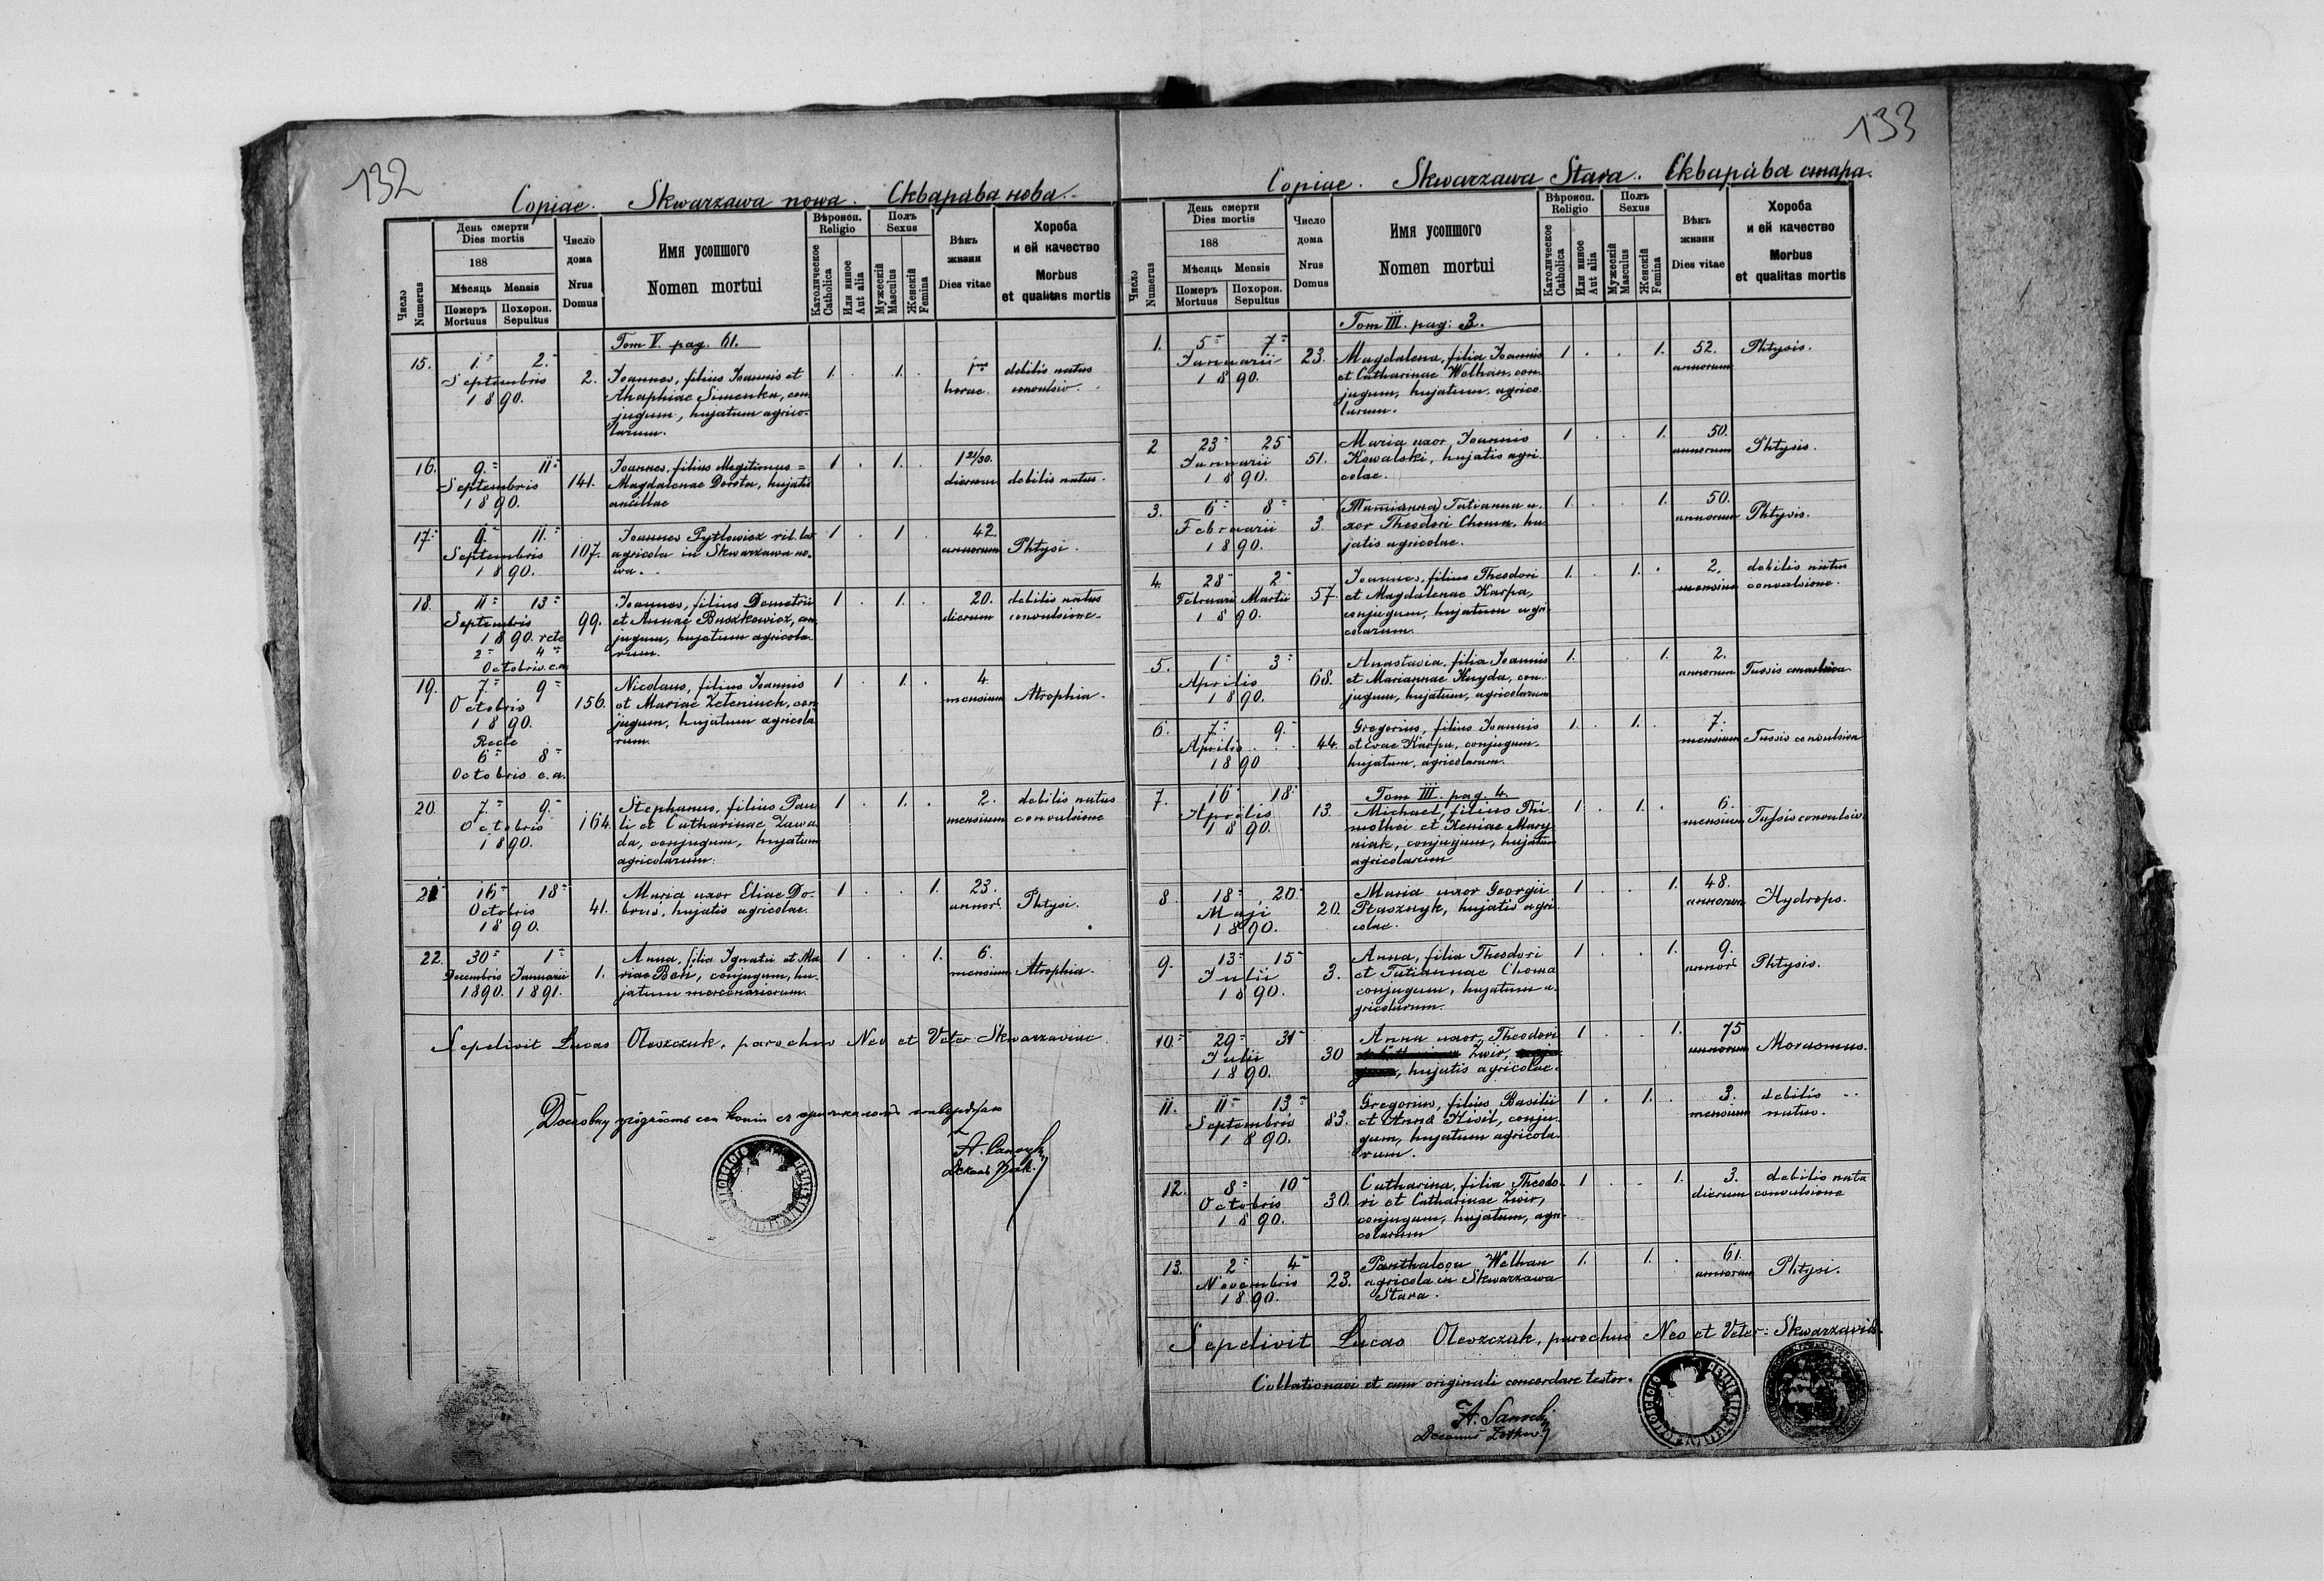 132
Copiae. Skwarzawa nowa. Скварѧва нова.
Число Numerus
День смерти
Dies mortis
188
Мѣсяць Mensis
Померъ Mortuus
Похорон. Sepultus
Число дома
Nrus Domus
Имя усопшого
Nomen mortui
Вѣроисп. Religio
Католическое Catholica
Или инное Aut alia
Полъ Sexus
Мужескій Masculus
Женскій Femina
Вѣкъ жизни
Dies vitae
Хороба и ей качество
Morbus et qualitas mortis
Tom V. pag. 61.
15. 1. 2. Septembris 1890. 2. Joannes, filius Joannis et 1. . 1. . 1 horae debilis natus convulsio
Ahaphiae Simenka, con
jugum, hujatum agrico-
larum.
16. 9. 11. Septembris 1890. 141. Joannes, filius illegitimus = 1 . 1. . 1 21/30. dierum debilis natus.
Magdalenae Dorota, hujatis
ancillae
17. 9. 11. Septembris 1890. 107. Joannes Pytlowicz rit. lat 1 . 1 . 42. annorum Phtysi.
agricola in Skwarzawa no-
wa.
18. 11 13 Septembris 1890. rcte 2 4 Octobris. c.a. 99. Joannes, filius Demetrii 1 . 1. . 20. dierum debilis natus convulsione.
et Annae Buszkowicz, con
jugum, hujatum agricola-
rum.
19. 7. 9 Octobris 1890. Recte 6 8 Octobris c.a. 156. Nicolaus, filius Joannis 1 . 1. . 4. mensium Atrophia.
et Mariae Zeleniuch, con
jugum, hujatum agricola
rum.
20. 7. 9. Octobris 1890. 164. Stephanus, filius Pau- 1 . 1. . 2. mensium debilis natus convulsione
li et Catharinae Zawa-
da, conjugum, hujatum
agricolarum.
21 16 18 Octobris 1890. 41. Maria uxor Eliae Do- 1 . . 1. 23. annor. Phtysi.
brus, hujatis agricolae.
22. 30 1 Decembris Januarii 1890. 1891. 1. Anna, filia Ignatii et Ma 1 . . 1. 6. mensium Atrophia.
riae Ben, conjugum, hu-
jatum mercenariorum.
Sepelivit Lucas Oleszczuk, parochus Neo et Veter Skwarzaviae.
133
Copiae. Skwarzawa Stara. Скварѧва стара.
Число Numerus
День смерти
Dies mortis
188
Мѣсяць Mensis
Померъ Mortuus
Похорон. Sepultus
Число дома
Nrus Domus
Имя усопшого
Nomen mortui
Вѣроисп. Religio
Католическое Catholica
Или инное Aut alia
Полъ Sexus
Мужескій Masculus
Женскій Femina
Вѣкъ жизни
Dies vitae
Хороба и ей качество
Morbus et qualitas mortis
Tom III. pag: 3.
1. 5 7 Januarii 1890. 23. Magdalena, filia Joannis 1 . . 1. 52. annorum Phtysis.
et Catharinae Welhan, con
jugum, hujatum, agrico
larum.
2 23 25 Januarii 1890. 51. Maria uxor Joannis 1 . . 1. 50. annorum Phtysis.
Kowalski, hujatis agri-
colae.
3. 6 8 Februarii 1890. 3. Tatianna u- 1. . . 1. 50. annorum Phtysis.
xor Theodori Choma, hu
jatis agricolae.
4. 28 2 Februarii Martii 1890. 57. Joannes, filius Theodori 1. . 1. . 2. mensium debilis natus convulsione.
et Magdalenae Karpa,
conjugum, hujatum agri-
colarum.
5. 1 3 Aprilis 1890. 68. Anastasia, filia Joannis 1. . . 1. 2. annorum Tussis convulsiva
et Mariannae Knyda, con-
jugum, hujatum, agricolarum
6. 7 9. Aprilis. 1890 44. Gregorius, filius Joannis 1. . 1. . 7. mensium Tussis convulsiva
et Evae Karpa, conjugum.
hujatum, agricolarum.
Tom III. pag. 4.
7. 16 18 Aprilis 1890. 13. Michael, filius Thi 1. . 1. . 6. mensium Tussis convulsiv.
mothei et Xeniae Mary
niak, conjugum, hujatum
agricolarum
8. 18 20 Maji 1890. 20. Maria uxor Georgii 1 . . 1. 48. annorum Hydrops.
Ptasznyk, hujatis agri-
colae.
9. 13 15 Julii 1890. 3. Anna, filia Theodori 1 . . 1. 9. annor. Phtysis.
et Tatiannae Choma
conjugum, hujatum a-
gricolarum.
10. 29 31 Julii 1890. 30 Anna uxor, Theodori 1 . . 1. 75 annorum Morasmus.
Zwir,
, hujatis agricolae.
11. 11 13 Septembris 1890. 83. Gregorius, filius Basilii 1 . 1. . 3. mensium debilis natus.
et Anna Kisil, conju-
gum, hujatum agricola-
rum.
12. 8 10 Octobris 1890. 30. Catharina, filia Theodo- 1 . . 1. 3. dierum debilis nata convulsione
ri et Catharinae Zwir,
conjugum, hujatum, agri-
colarum
13. 2 4 Novembris 1890. 23. Panthaleon Welhan 1. . 1. . 61. annorum Phtysi.
agricola in Skwarzawa
Stara.
Sepelivit Lucas Oleszczuk, parochus Neo et Veter: Skwarzaviae.
Collationavi et cum originali concordare testor.